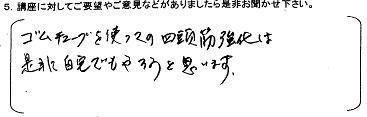 5. 講座に対してご要望やご意見などがありましたら是非お聞かせ下さい。
ゴムチューブを使っての四頭筋強化は
是非自宅でもやろうと思います。